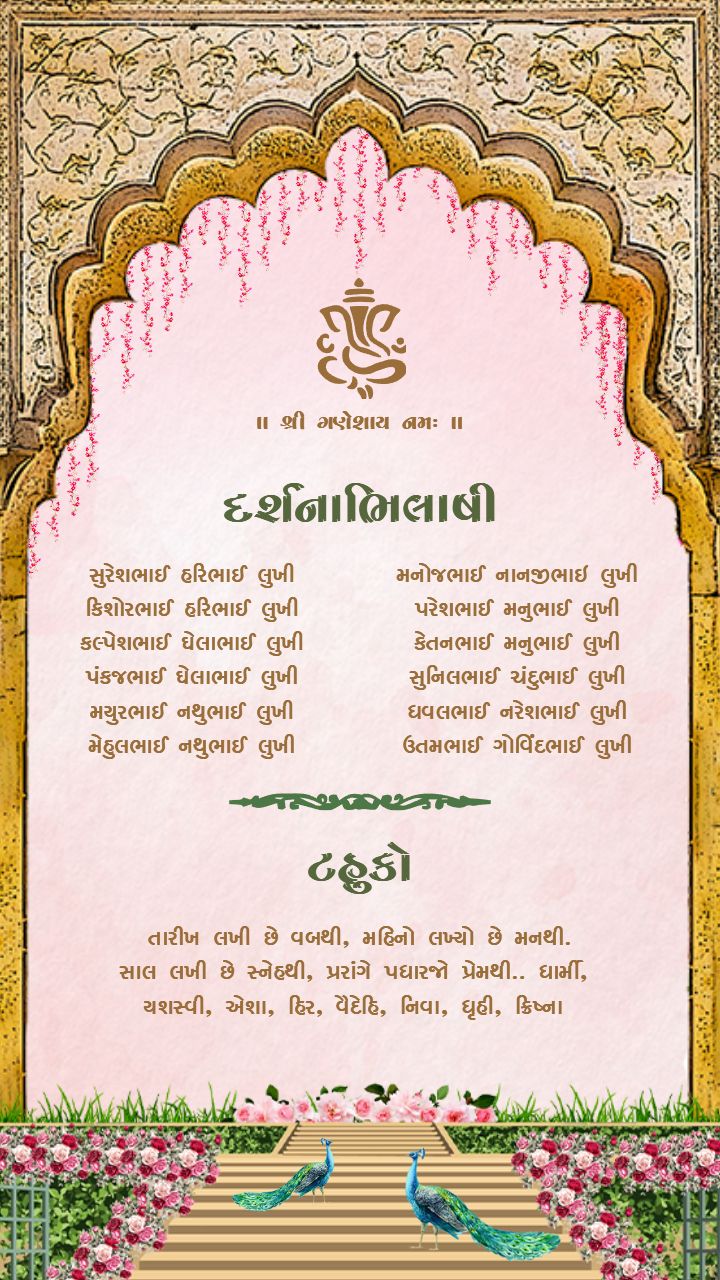 ॥ શ્રી ગણેશાય નમઃ ॥
દર્શનાભિલાષી
સુરેશભાઈ હરિભાઈ લુખી
કિશોરભાઈ હરિભાઈ લુખી
કલ્પેશભાઈ ઘેલાભાઈ લુખી
પંકજભાઈ ઘેલાભાઈ લુખી
મયુરભાઈ નથુભાઈ લુખી
મેહુલભાઈ નથુભાઈ લુખી
મનોજભાઈ નાનજીભાઇ લુખી
પરેશભાઈ મનુભાઈ લુખી
કેતનભાઈ મનુભાઈ લુખી
સુનિલભાઈ ચંદુભાઈ લુખી
ધવલભાઈ નરેશભાઈ લુખી
ઉતમભાઈ ગોવિંદભાઈ લુખી
ટહુકો
તારીખ લખી છે વબથી, મહિનો લખ્યો છે મનથી.
સાલ લખી છે સ્નેહથી, પ્રરાંગે પધારજો પ્રેમથી.. ધાર્મી,
યશસ્વી, એશા, હિર, વૈદેહિ, નિવા, ધૃહી, ક્રિષ્ના